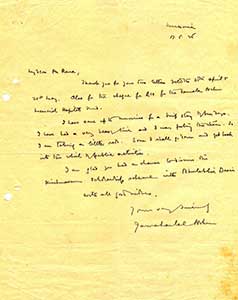 Mussoorie
My dear Mr Rana,
Thank you for your two letters dated the April &
20th May. Also for the cheque for Rs for the Kamala Nehru
Memorial Hospital Fund.
I have come up to Mussoorie for a brief stay of few days.
I have had a very heavy time and I was feeling tired. So
I am taking a little rest. Soon I shall go down and get back
into the whirl of public activities.
I am glad you had a chance to discuss the
scholarship scheme with
With all good wishes,
Yours very sincerely
Jawaharlal Nehru